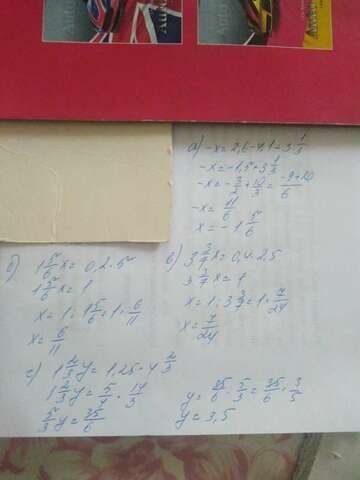 а) -x = 2,6-4,1-3 1/3
-x = -1,5+3 1/3
-x = -3/2+10/3 = -9+20/6
-x = 11/6
x = -1 5/6
б) 1 5/6 x = 0,2·5
1 5/6 x = 1
x = 1 : 1 5/6 = 1· 6/11
x = 6/11
в) 3 3/7 x = 0,4·2,5
3 3/7 x = 1
x = 1 : 3 3/7 = 1· 7/24
x = 7/24
г) 1 2/3 y = 1,25·4 2/3
1 2/3 y = 5/4 · 14/3
5/3 y = 35/6
y = 35/6 : 5/3 = 35/6 · 3/5
y = 3,5